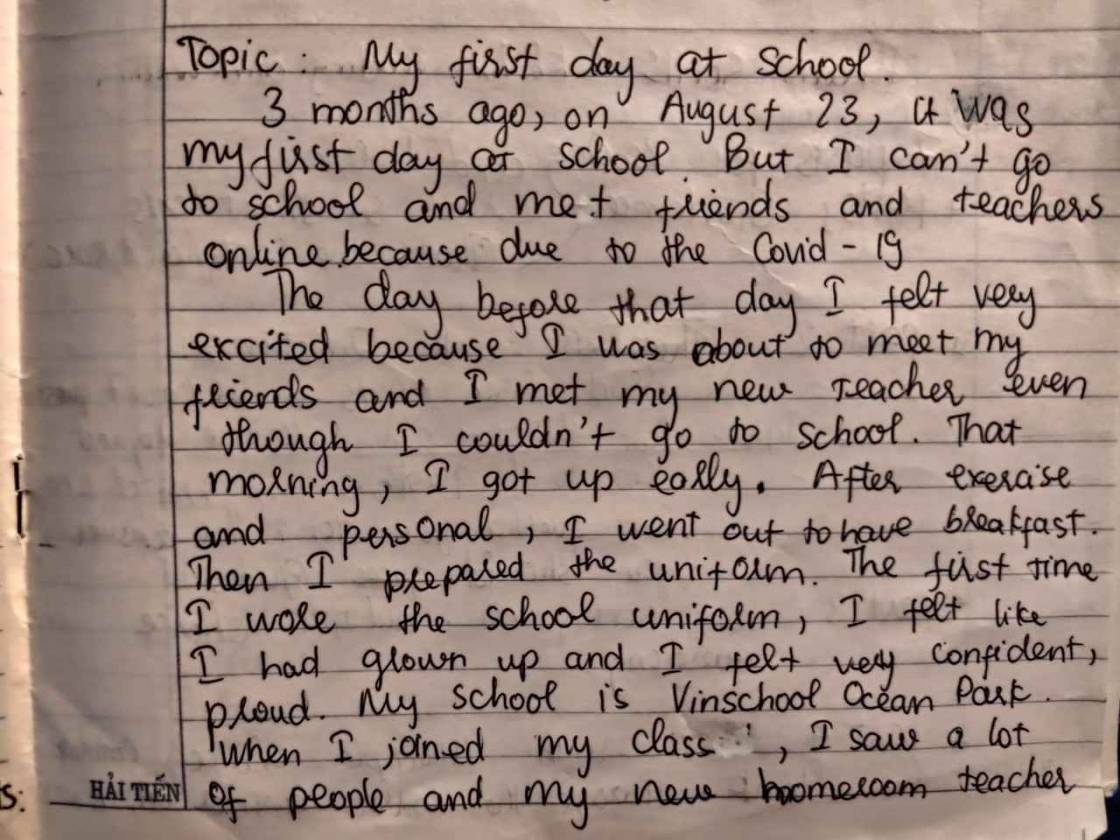 Topic : My first day at school.
3 months ago, on August 23, it was
my first day at school. But I can't go
to school and met friends and teachers
online because due to the Covid - 19
The day before that day I felt very
excited because I was about to meet my
friends and I met my new teacher even
though I couldn't go to school. That
morning, I got up early. After exercise
and personal, I went out to have breakfast.
Then I prepared the uniform. The first time
I wore the school uniform, I felt like
I had grown up and I felt very confident,
proud. My school is Vinschool Ocean Park.
When I joined my class , I saw a lot
HẢI TIẾN of people and my new homeroom teacher